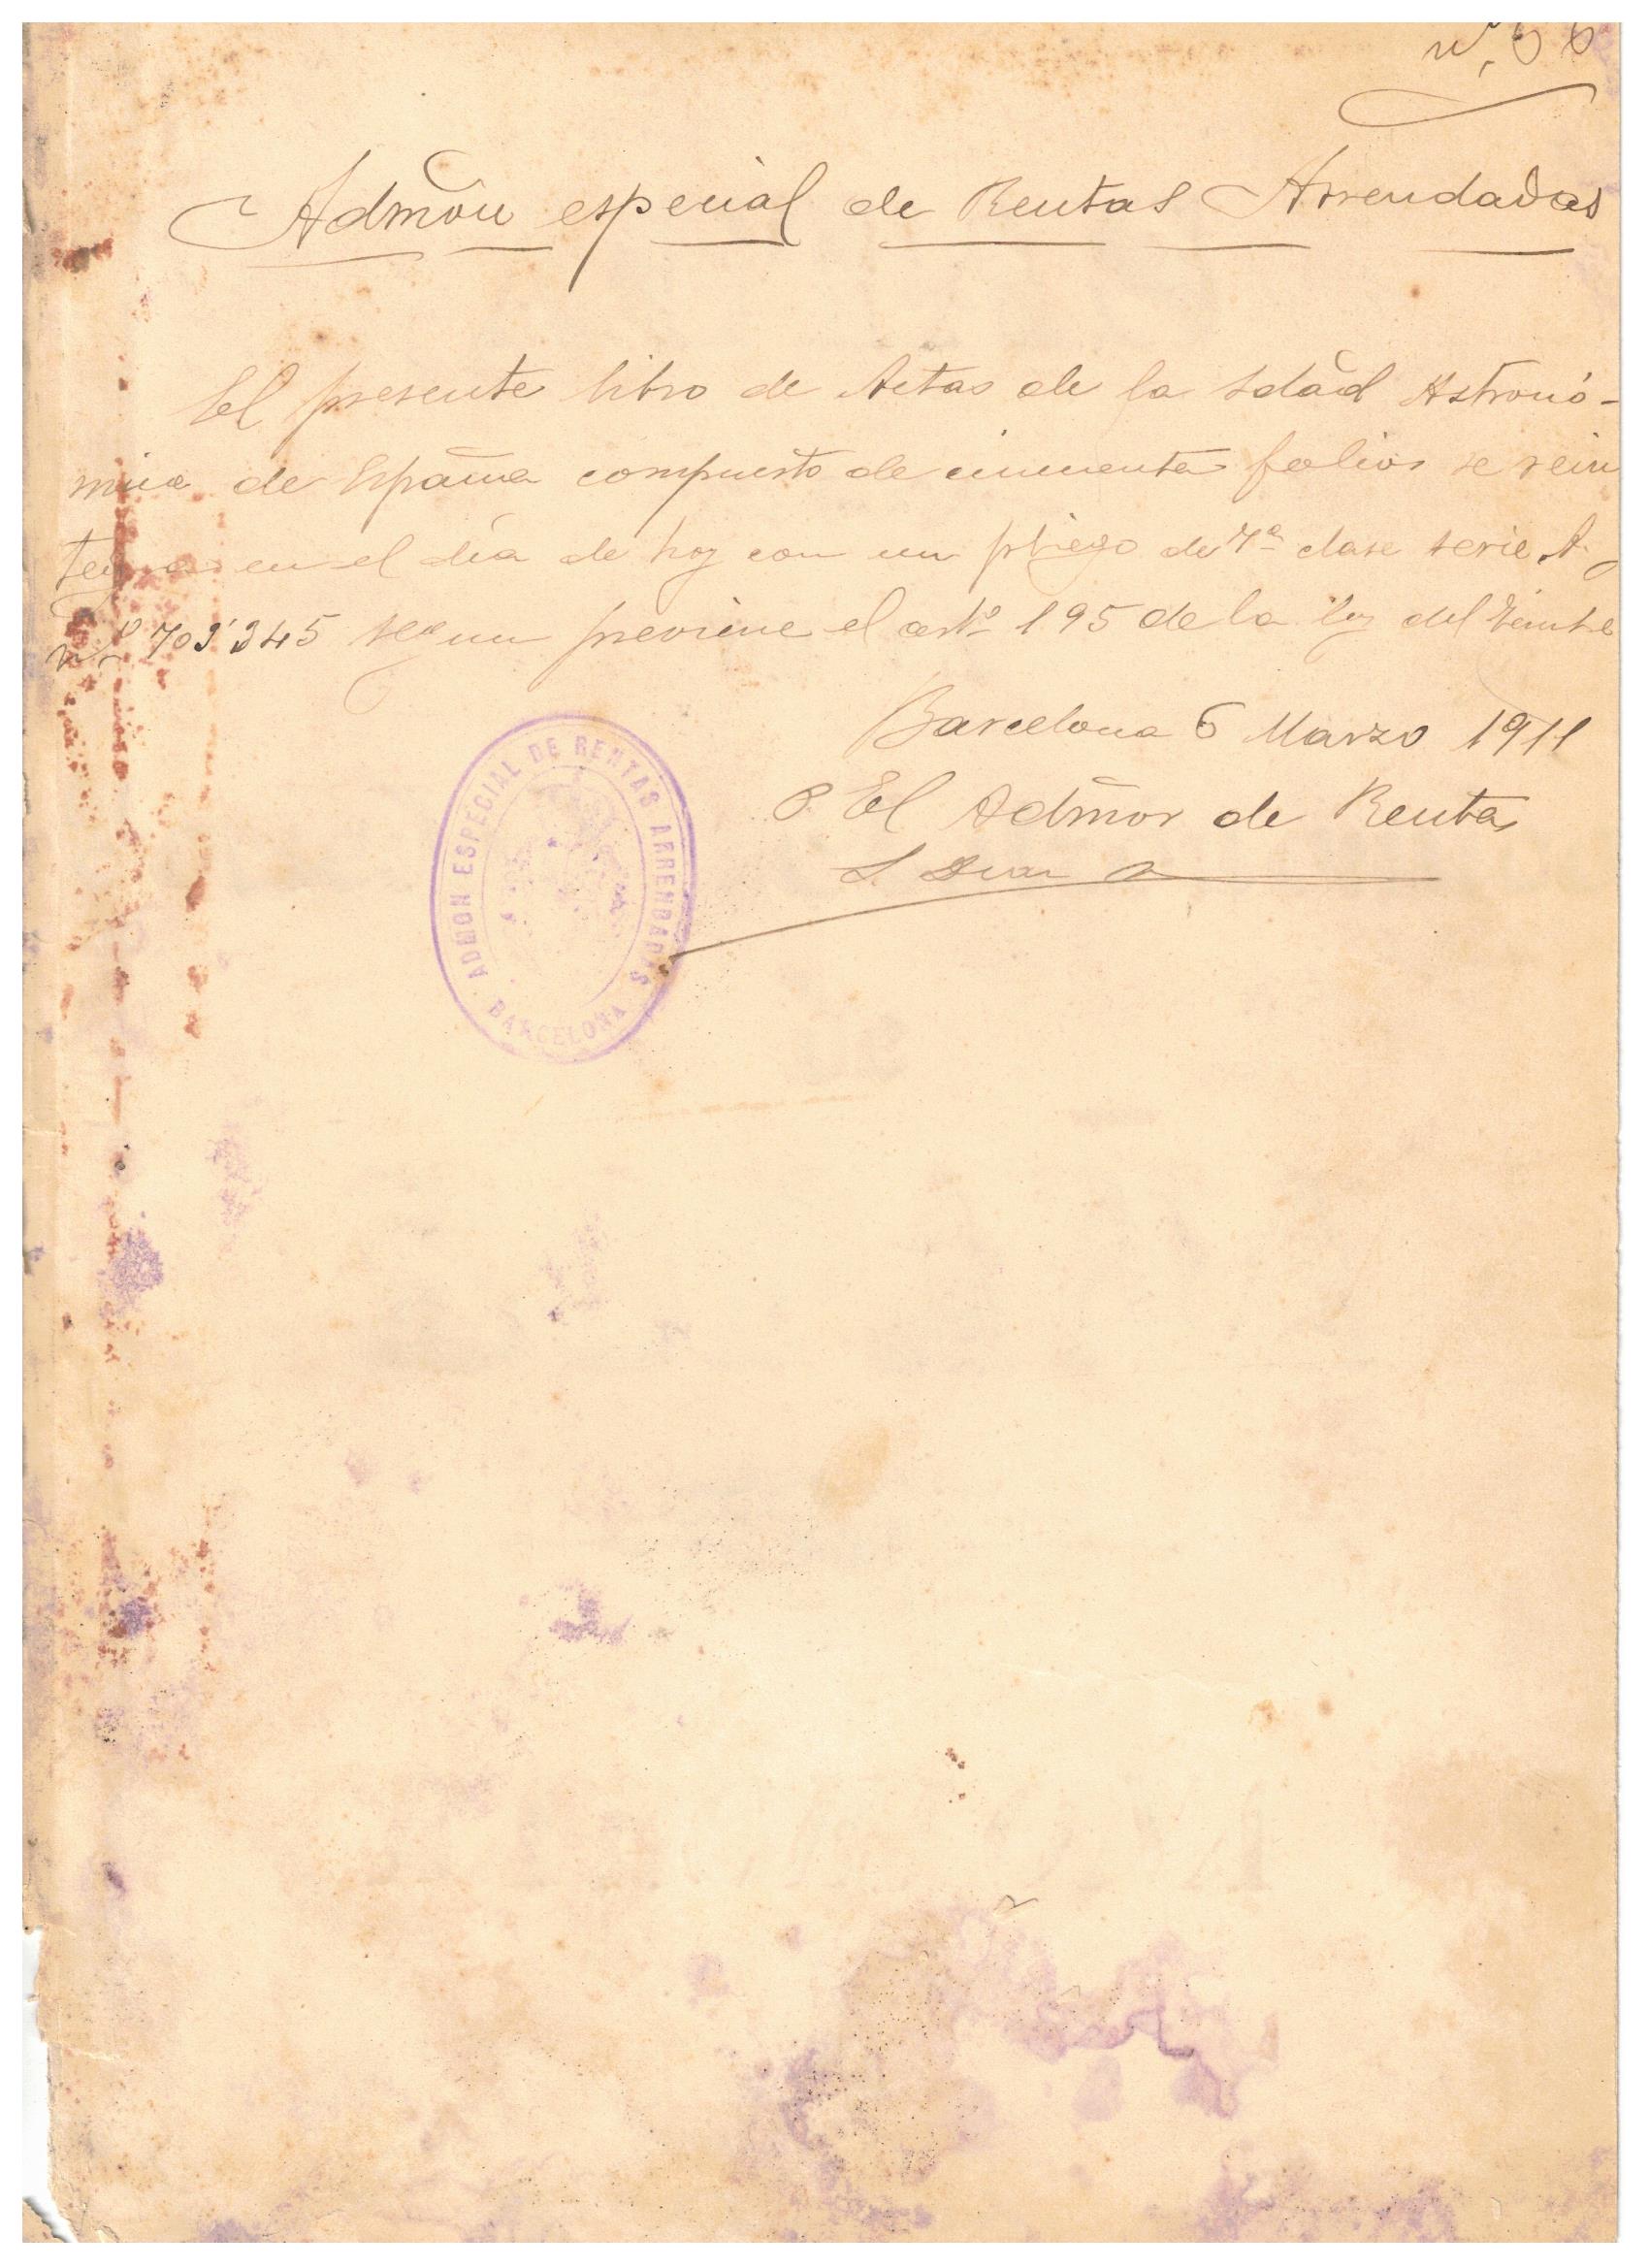 nº 66
Admōn especial de Rentas Arrendadas
El presente libro de Actas de la Sdad Astronó-
mica de España compuesto de cincuenta folios se rein
tegra en el día de hoy con un pliego de 7ª clase serie A.
nº 703'345 segun previene el artº 195 de la ley del timbre
Barcelona 6 Marzo 1911
P. El Admōr de Rentas
ADMON ESPECIAL DE RENTAS ARRENDADAS
BARCELONA